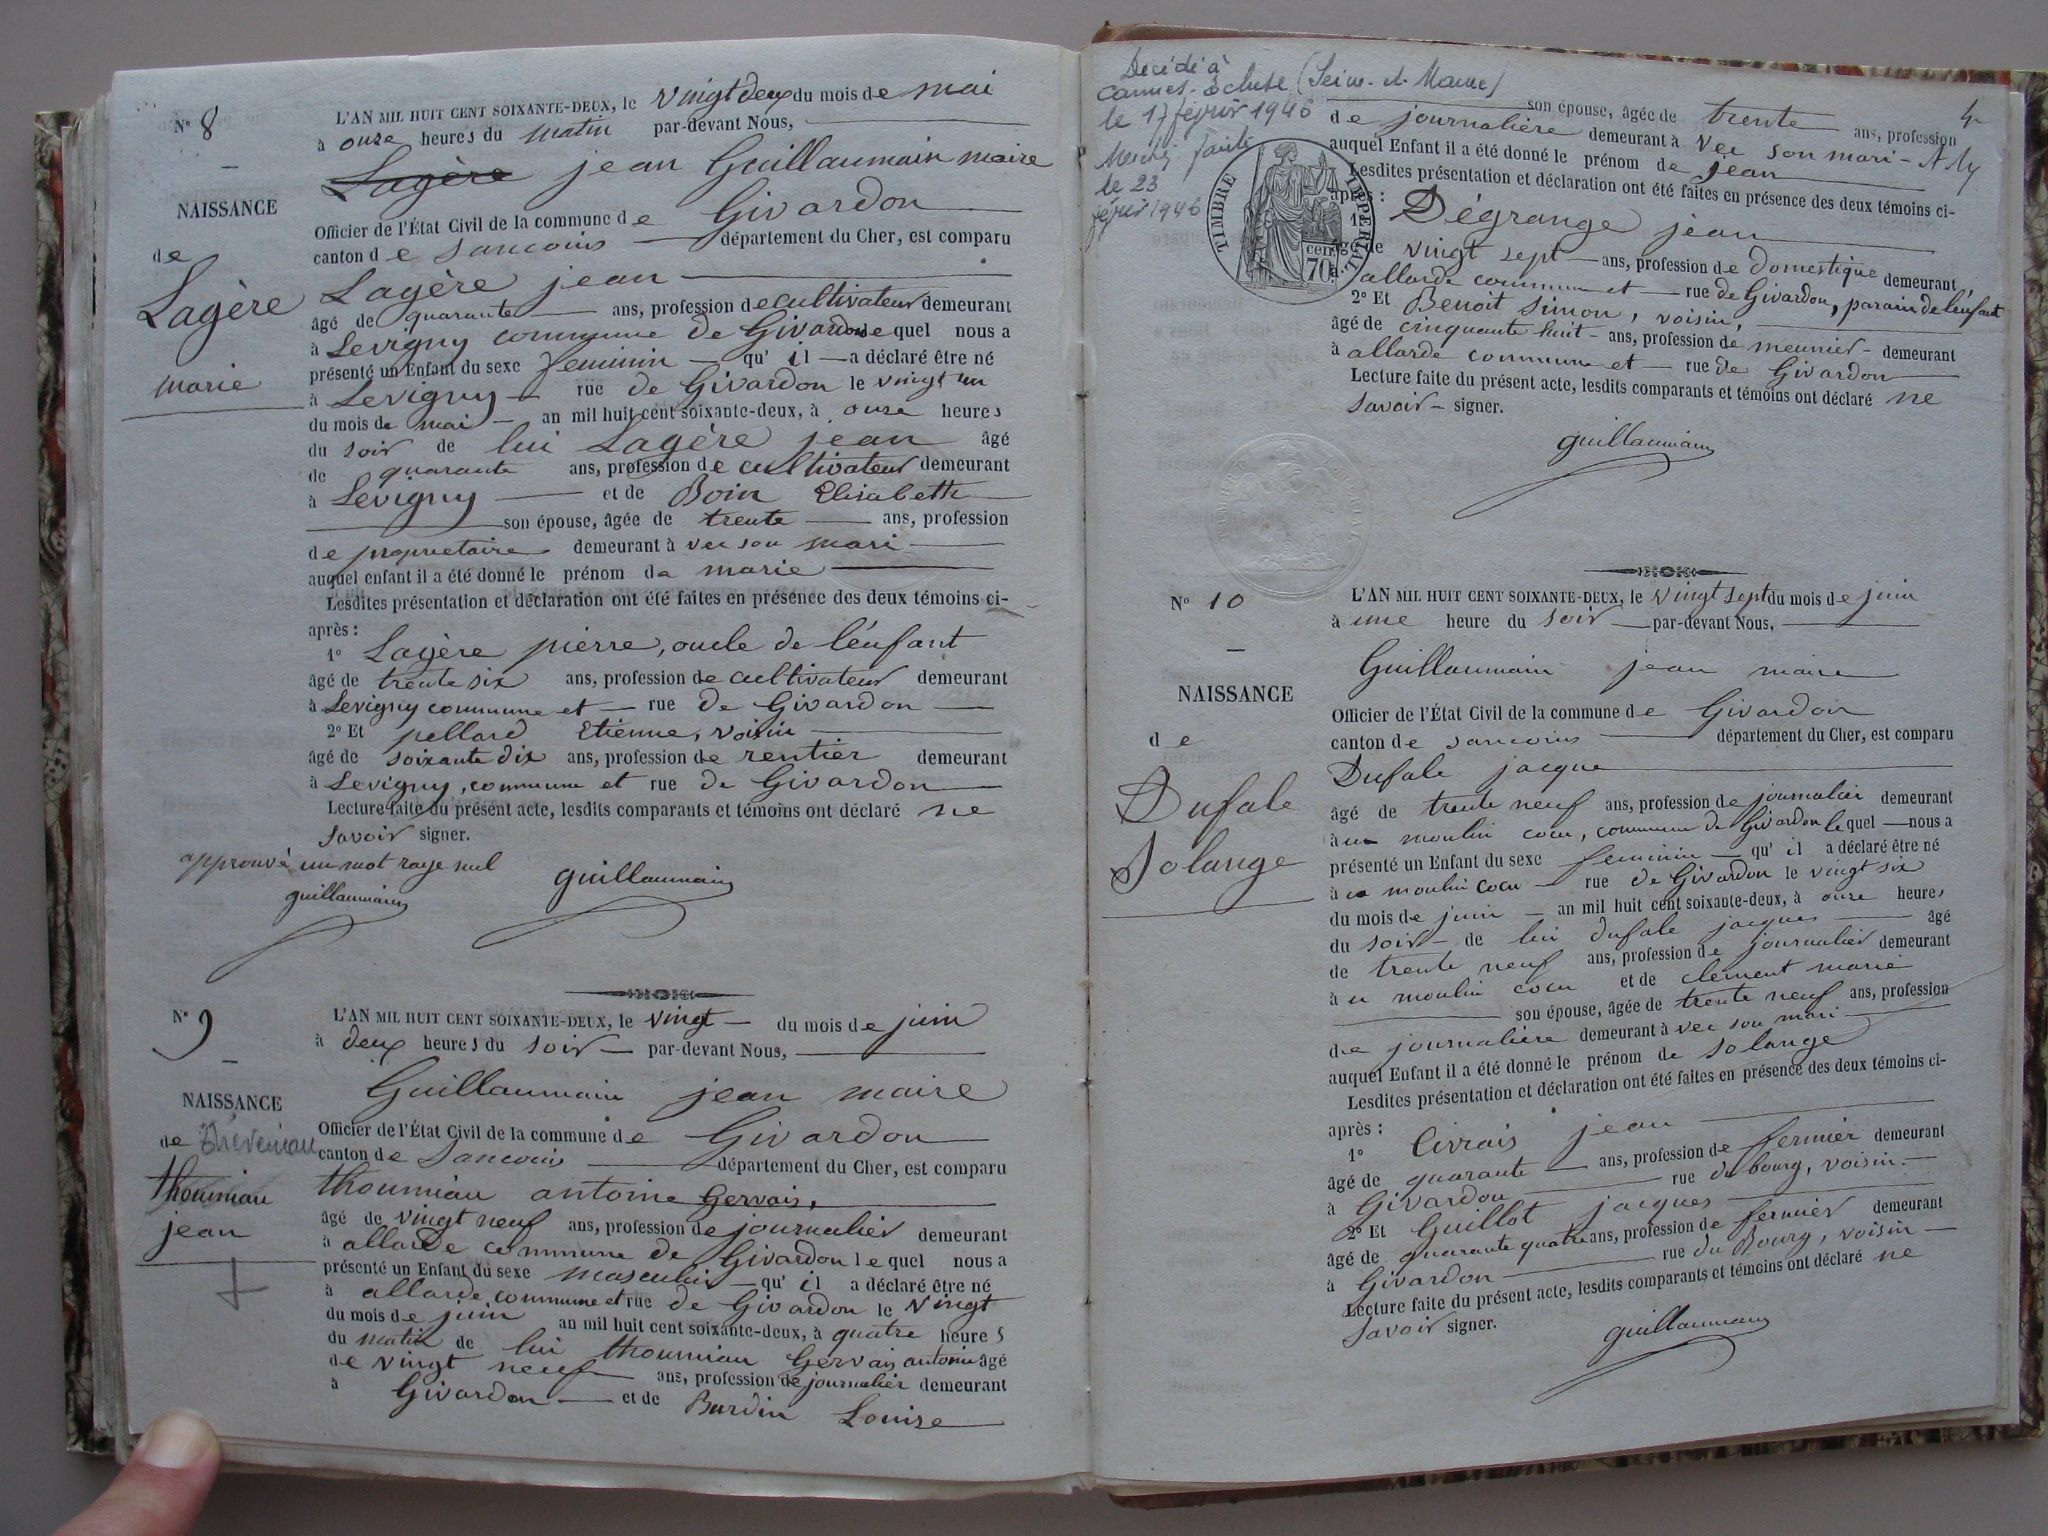 N° 8
NAISSANCE
de
Lagère
marie
L'AN MIL HUIT CENT SOIXANTE-DEUX, le vingt deux du mois de mai
à onze heures du matin par-devant Nous,
Lagère jean Guillaumain maire
Officier de l'État Civil de la commune de Givardon
canton de Sancoins département du Cher, est comparu
Lagère jean
âgé de quarante ans, profession de cultivateur demeurant
à Levigny commune de Givardon lequel nous a
présenté un Enfant du sexe feminin qu'il a déclaré être né
à Levigny rue de Givardon le vingt un
du mois de mai an mil huit cent soixante-deux, à onze heures
du soir de lui Lagère jean âgé
de quarante ans, profession de cultivateur demeurant
à Levigny et de Boin Elisabeth
son épouse, âgée de trente ans, profession
de propriétaire demeurant à vec son mari
auquel enfant il a été donné le prénom de marie
Lesdites présentation et déclaration ont été faites en présence des deux témoins ci-
après :
1° Lagère pierre, oncle de l'énfant
âgé de trente six ans, profession de cultivateur demeurant
à Levigny commune et rue de Givardon
2° Et pellard Etienne, voisin
âgé de soixante dix ans, profession de rentier demeurant
à Levigny, commune et rue de Givardon
Lecture faite du présent acte, lesdits comparants et témoins ont déclaré ne
savoir signer.
approuvé un mot raye nul
guillaumain guillaumain
N° 9
NAISSANCE
de
thoumiau
jean
L'AN MIL HUIT CENT SOIXANTE-DEUX, le vingt du mois de juin
à deux heures du soir par-devant Nous,
Guillaumain jean maire
Officier de l'État Civil de la commune de Givardon
canton de Sancoins département du Cher, est comparu
thoumiau antoine Gervais,
âgé de vingt neuf ans, profession de journalier demeurant
à allarde commune de Givardon lequel nous a
présenté un Enfant du sexe masculin qu'il a déclaré être né
à allarde commune et rue de Givardon le vingt
du mois de juin an mil huit cent soixante-deux, à quatre heures
du matin de lui thoumiau Gervais antoine âgé
de vingt neuf ans, profession de journalier demeurant
à Givardon et de Burdin Louise
Décédé à
Cannes-Ecluse (Seine-et-Marne)
le 17 février 1946
le 23
février 1946
TIMBRE IMPERIAL
70 cen.
4
son épouse, âgée de trente ans, profession
de journalière demeurant à vec son mari
auquel Enfant il a été donné le prénom de jean
Lesdites présentation et déclaration ont été faites en présence des deux témoins ci-
après :
1° Dégrange jean
âgé de vingt sept ans, profession de domestique demeurant
à allarde commune et rue de Givardon, parain de l'énfant
2° Et Benoit Simon, voisin,
âgé de cinquante huit ans, profession de meunier demeurant
à allarde commune et rue de Givardon
Lecture faite du présent acte, lesdits comparants et témoins ont déclaré ne
savoir signer.
guillaumain
N° 10
NAISSANCE
de
Dufale
Solange
L'AN MIL HUIT CENT SOIXANTE-DEUX, le vingt sept du mois de juin
à une heure du soir par-devant Nous,
Guillaumain jean maire
Officier de l'État Civil de la commune de Givardon
canton de sancoins département du Cher, est comparu
Dufale jacque
âgé de trente neuf ans, profession de journalier demeurant
à u moulin cocu, commune de Givardon lequel nous a
présenté un Enfant du sexe feminin qu'il a déclaré être né
à u moulin cocu rue de Givardon le vingt six
du mois de juin an mil huit cent soixante-deux, à onze heures
du soir de lui dufale jacques âgé
de trente neuf ans, profession de journalier demeurant
à u moulin cocu et de clement marie
son épouse, âgée de trente neuf ans, profession
de journalière demeurant à vec son mari
auquel Enfant il a été donné le prénom de solange
Lesdites présentation et déclaration ont été faites en présence des deux témoins ci-
après :
1° Civrais jean
âgé de quarante ans, profession de fermier demeurant
à Givardon rue du bourg, voisin
2° Et Guillot jacques
âgé de quarante quatre ans, profession de fermier demeurant
à Givardon rue du Bourg, voisin
Lecture faite du présent acte, lesdits comparants et témoins ont déclaré ne
savoir signer.
guillaumain